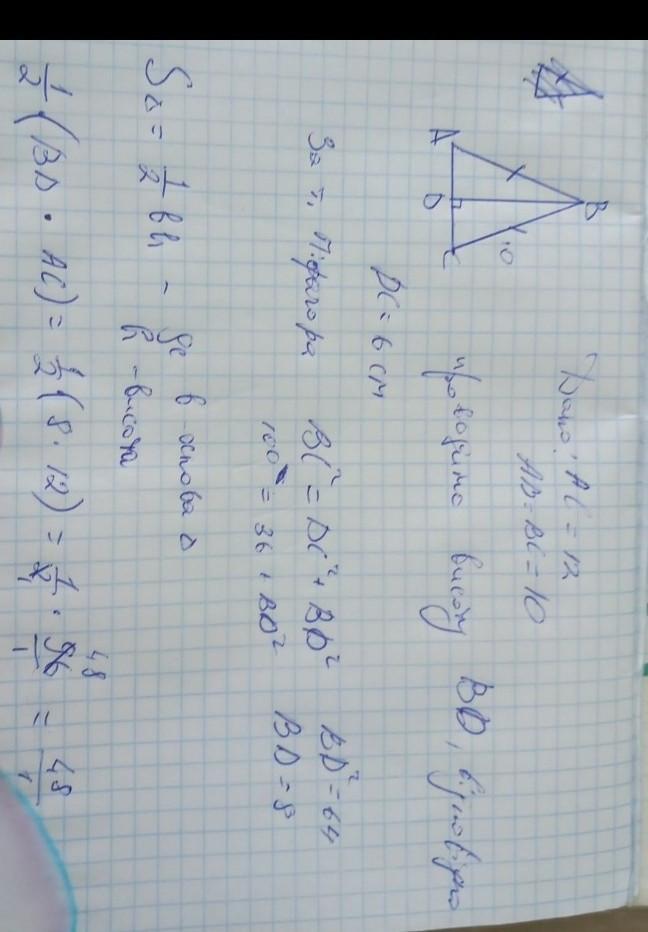 Дано: AC = 12
AB = BC = 10
A
D
C
B
10
проводимо висоту BD, відповідно
DC = 6 см
За т. Піфагора BC² = DC² + BD² BD² = 64
100 = 36 + BD² BD = 8
S△ = 1/2 bh - де b основа △
h - висота
1/2 (BD · AC) = 1/2 (8 · 12) = 1/2 · 96/1 = 48/1
48
1